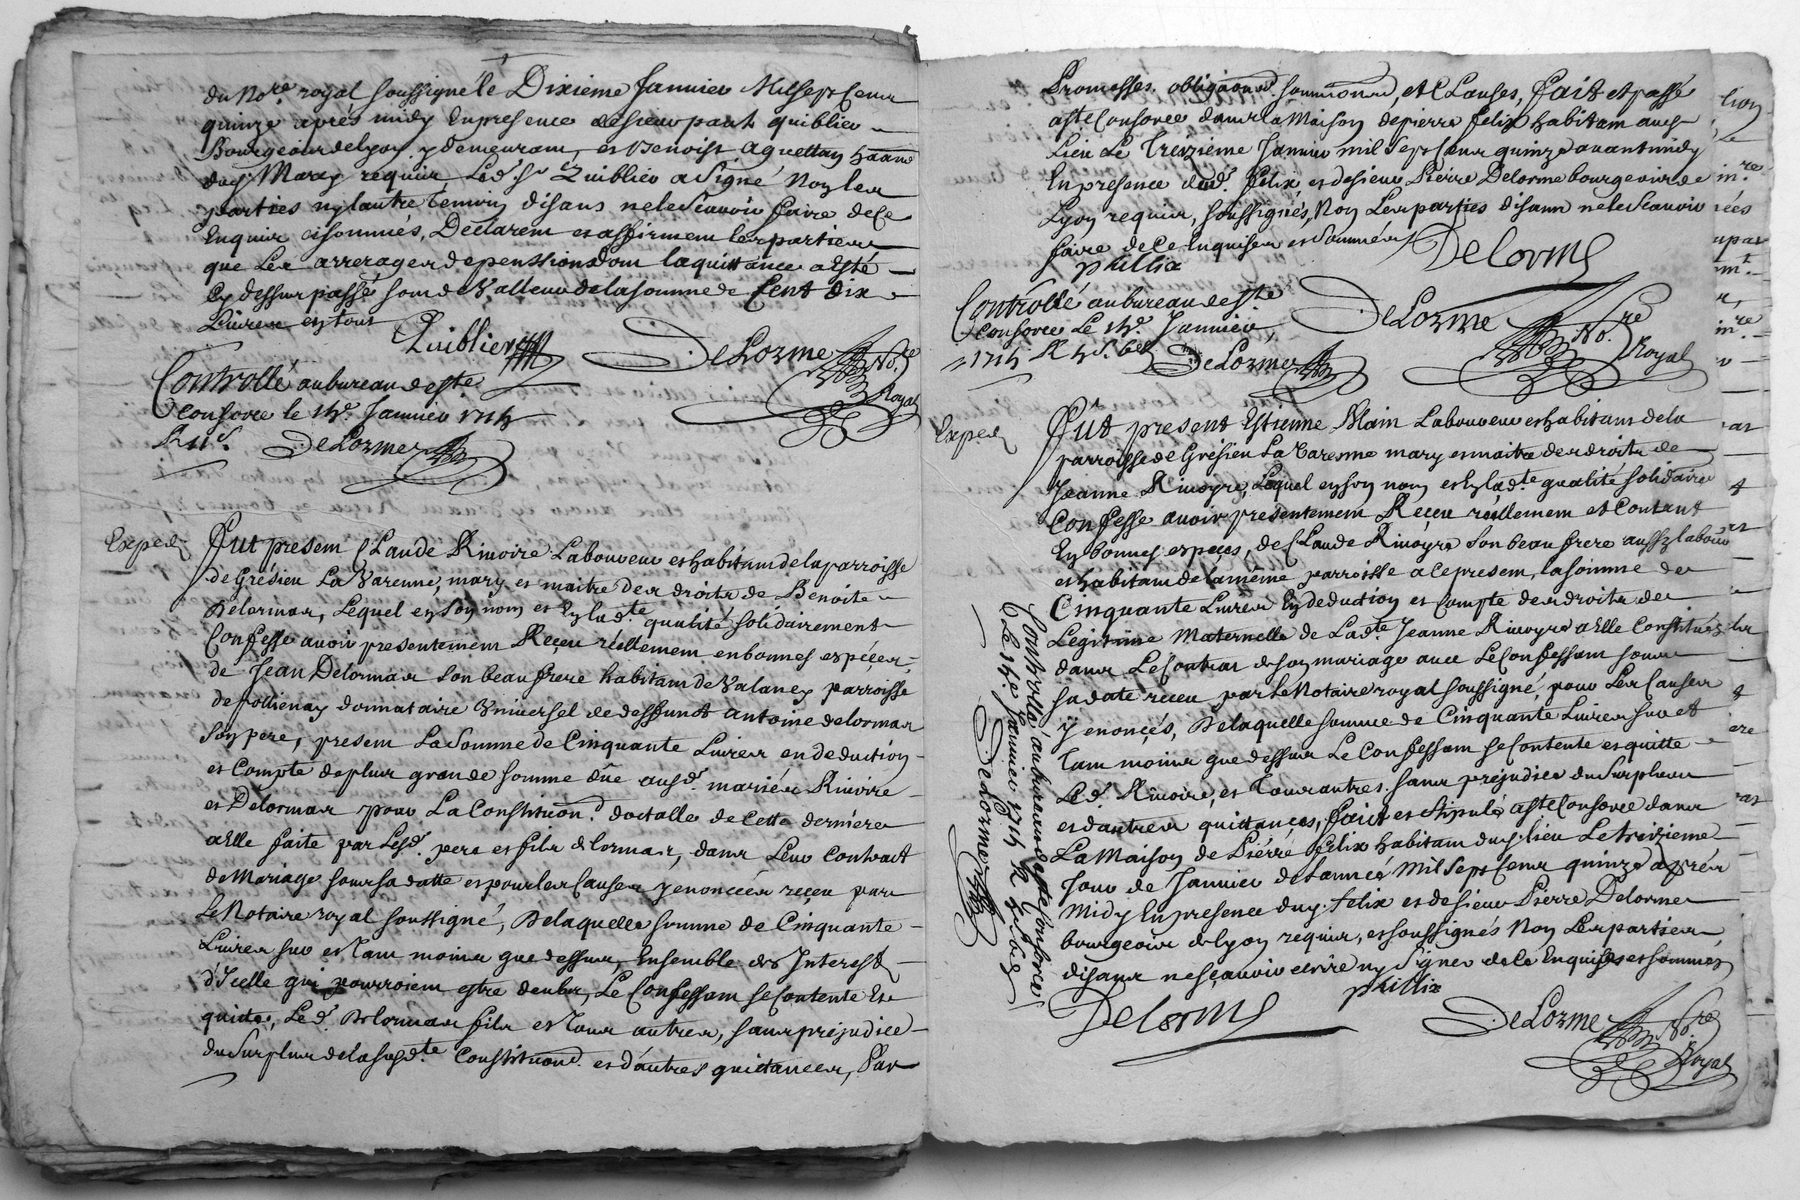 du No.re royal soussigné le Dixieme Janvier Mil sept Cens
quinze apres midy En presence de sieur paul quiblier
Bourgeois de Lyon y demeurant, et Benoist aguettan
requis Led. Sr Quiblier a signé Non les
parties ny lautre temoin disans ne le scavoir faire de ce
Enquis et sommés, Declarent et affirment les parties
que Les arrerages de penssions dont la quittance a Esté
Cy dessus passé sont de Valleur de la somme de Cent dix
Livres en tout
Quiblier
DeLorme No.re Royal
Controllé au bureau de Ste
Consorce le 14e. Janvier 1715
R 11 s.
DeLorme
Exped.
Fut present Claude Rivoire Laboureur et habitant de la parroisse
de Grésieu La Varenne, mary et maitre des droits de Benoite
Delormas, Lequel en son nom et En lad.te qualité solidairement
Confesse avoir presentement Reçeu réellement en bonnes espéces
de Jean Delormas son beau frere habitant de Valaney parroisse
de Pollienay donnataire Universel de deffunct Antoine delormas
son pere, present La somme de Cinquante Livres en deduction
et Compte de plus grande somme dûe ausd. mariés Rivoire
et Delormas pour La Constitu͠on d. dottalle de Cette derniére
a Elle faite par Lesd. pere et fils delormas, dans Leur Contract
de Mariage sous sa datte et pour les Causes y enoncées reçeu par
Le Notaire royal soussigné, De laquelle somme de Cinquante
Livres sur et tant moins que dessus, Ensemble des Interest
d'Icelle qui pourroient estre deubs, Le Confessant se Contente Et
quitte, Led. Delormas fils et tous autres, sans prejudice
du surplus de la susd.te Constitu͠on d. et d'autres quittances, Par
Promesses obliga͠ons, soumi͠ons, et Clauses, fait et passé
a Ste Consorce dans la Maison de pierre felix habitant aud.
Lieu Le Treizieme Janvier mil sept Cens quinze avant midy
En presence dud. felix et de sieur Pierre Delorme bourgeois de
Lyon requis, soussignés, Non Les parties disans ne le scavoir
faire de ce Enquises et sommées
phillix
Delorme
Controllé au bureau de Ste
Consorce Le 14e. Janvier
1715 R
DeLorme
DeLorme No.re Royal
Exped.
Fût present Estienne Alain Laboureur et habitant de la
parroisse de Grésieu La Varenne mary et maitre des droits de
Jeanne Rivoyre, Lequel en son nom et En lad.te qualité solidaire
Confesse avoir presentement Reçeu réellement et Contant
En bonnes espeçes, de Claude Rivoyre son beau frere aussy labour
et habitant de la même parroisse a ce present, la somme de
Cinquante Livres En deduction et Compte des droits de
Legitime Maternelle de Lad.te Jeanne Rivoyre a Elle Constitués
dans Le Contrat de son mariage avec Le Confessant sous
sa date reçeu par Le Notaire royal soussigné, pour Les Causes
y enonçés, De laquelle somme de Cinquante Livres sur et
Tant moins que dessus Le Confessant se Contente et quitte
Led. Rivoire, et Tous autres sans prejudice du surplus
et d'autres quittances, fait et stipulé a Ste Consorce dans
La Maison de Piérre felix habitant dud. lieu Le treizieme
Jour de Janvier de l'année Mil Sept Cens quinze apres
Midy En presence dud. felix et de sieur Pierre Delorme
bourgeois de lyon requis, et soussignés Non Les parties
disans ne sçavoir ecrire ny Signer de ce Enquises et sommées
phillix
Delorme
DeLorme No.re Royal
Controllé au bureau de Ste Consorce
Le 14e. Janvier 1715 R
DeLorme